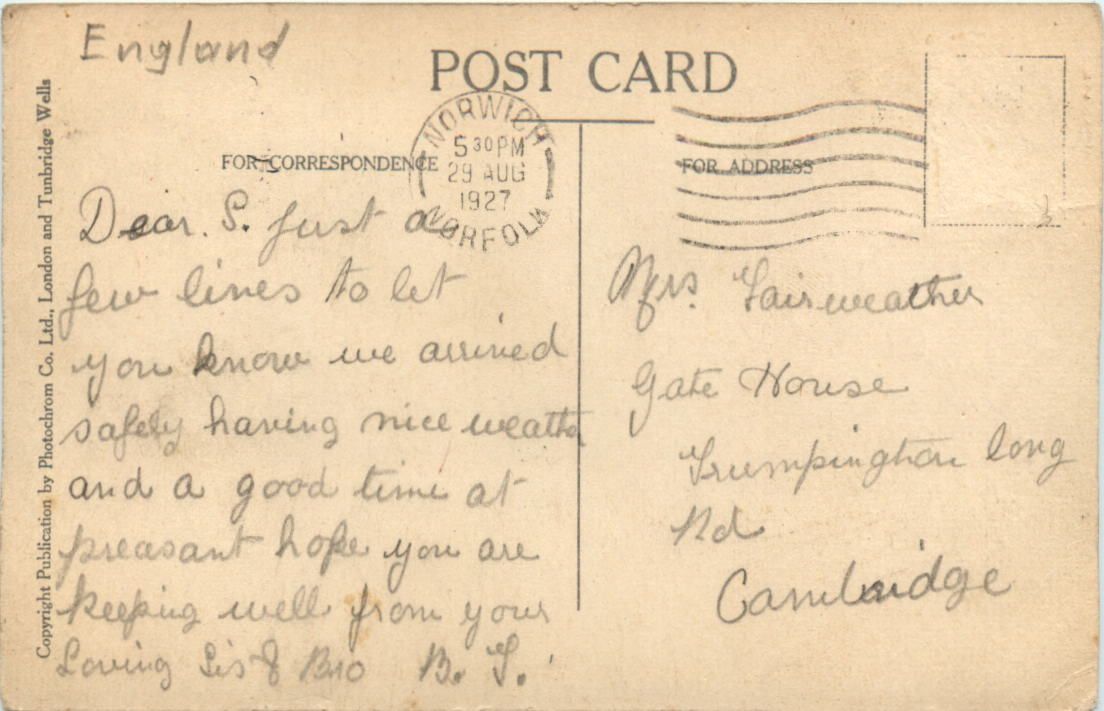 England
POST CARD
Copyright Publication by Photochrom Co. Ltd., London and Tunbridge Wells
NORWICH
5 30 PM
29 AUG
1927
NORFOLK
FOR CORRESPONDENCE
FOR ADDRESS
Dear. S. just a
few lines to let
you know we arrived
safely having nice weather
and a good time at
preasant hope you are
keeping well from your
Loving Sis & Bro B.
Mrs. Fairweather
Gate House
Trumpington long
Rd
Cambridge